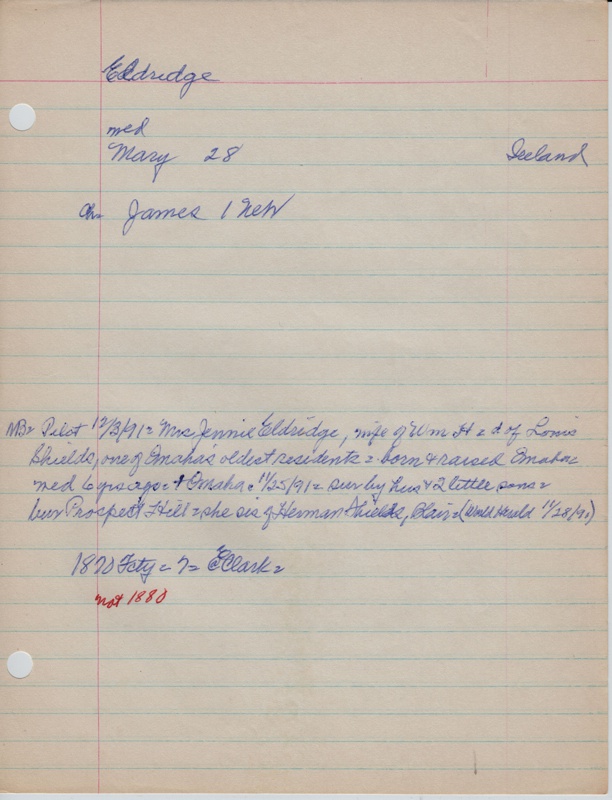 Eldridge
med
Mary 28 Ireland
ch= James 1 Neb
NB= Pilot 12/3/91= Mrs Jennie Eldridge, wife of Wm H = d of Louis
Shields, one of Omahas oldest residents = born & raised Omaha=
med 6 yrs ago= + Omaha = 11/25/91 = sur by hus & 2 little sons=
bur Prospect Hill = she sis of Herman Shields, Blair= (World Herald 11/28/91)
1870 Fcty = 7 = E Clark=
not 1880